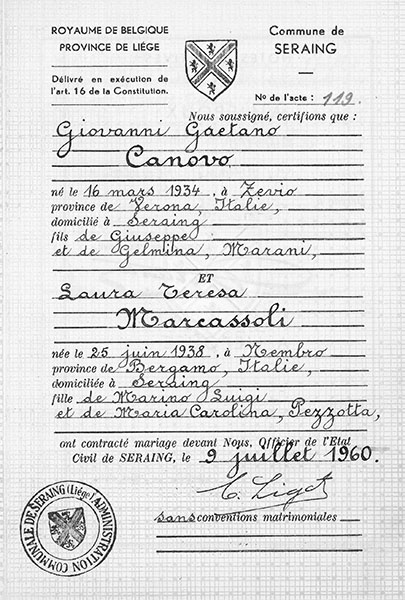 ROYAUME DE BELGIQUE
PROVINCE DE LIÉGE
Délivré en exécution de
l'art. 16 de la Constitution.
Commune de
SERAING
No de l'acte : 119.
Nous soussigné, certifions que :
Giovanni Gaetano
Canovo
né le 16 mars 1934, à Zevio
province de Verona, Italie,
domicilié à Seraing
fils de Giuseppe
et de Gelmina, Marani,
ET
Laura Teresa
Marcassoli
née le 25 juin 1938, à Nembro
province de Bergamo, Italie,
domiciliée à Seraing
fille de Marino Luigi
et de Maria Carolina, Pezzotta,
ont contracté mariage devant Nous, Officier de l'Etat
Civil de SERAING, le 9 juillet 1960.
sans conventions matrimoniales
ADMINISTRATION COMMUNALE DE SERAING (Liége)